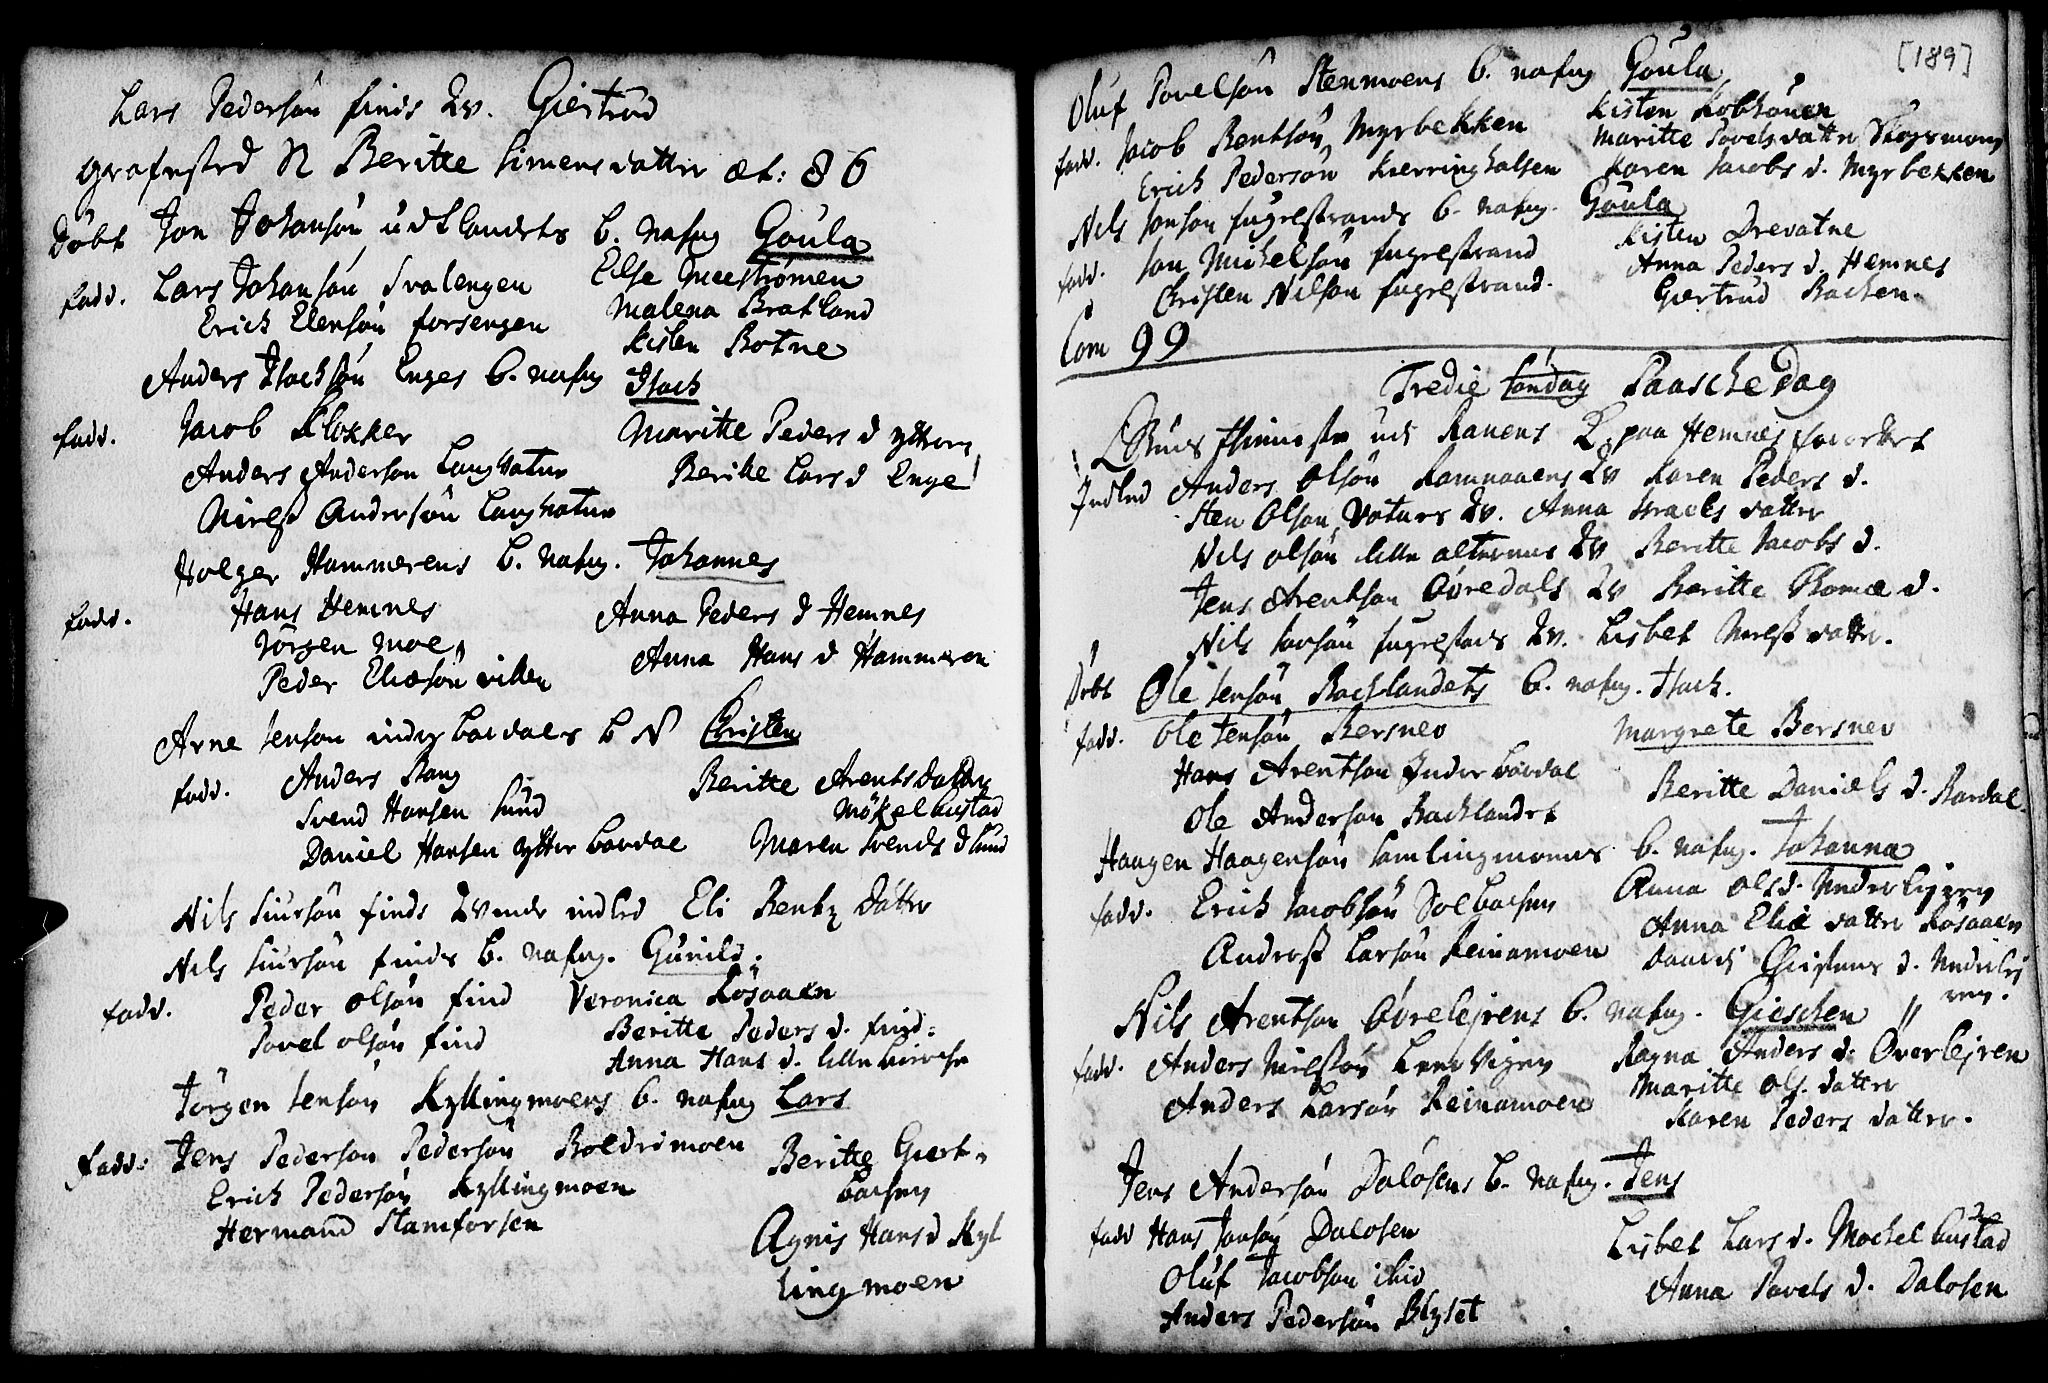 Lars Pedersøn finds Qv. Giertrud
grafæsted N Beritte Simensdatter æt: 86
Døbt Jon Johansøn udtlandets b. nafng Goula
fadd. Lars Johansøn Svalengen Else Meestrømen
Erich Elensøn forsengen Malena Bratland
Kisten Botne
Anders Isachsøn Enges b. nafng Isach
fadd. Jacob Klokker Maritte Peders d ytter
Anders Anderson Langvatne Beritte Lars d Enge
Nirss Andersøn Langvatne
Holger Hammerens b. nafng. Johannes
fadd. Hans Hemnes Anna Peders d Hemnes
Jørgen Moe Anna Hans d Hammeren
Peder Eliæsøn viken
Arne Jenson inder bardals b N Christen
fadd. Anders Bang Beritte Arents Datter
Svend Hansen Sund Møkelbustad
Daniel Hansen ytter bardal Maren Svends d Sund
Nils Siursøn finds Qvinde indled Eli Bentz Datter
Nils Siursøn finds b. nafng. Gunild.
fadd. Peder Olsøn find Veronica Røsaaen
Povel olsøn find Beritte Peders d. find:
Anna Hans d. lille
Jørgen Jensøn Kyllingmoens b. nafng Lars
fadd: Jens Pederson Pedersøn Boldrimoen Beritte Giert
Erich Pedersøn Kyllingmoen bachen
Hermand Stamforsen Agnis Hans d Kyl
lingmoen
[189]
Oluf Povelsøn Stenmoens b. nafng Goula
fadd. Jacob Bentsøn Myrbekken Kisten Kobhonen
Erich Pedersøn Kierringhalsen Maritte Povelsdatter Skogsmoen
Karen Jacobs d. Myrbekken
Nils Jonson fugrestrands b. nafng. Goula
fadd. Jon Michelsøn fugrestrand Kisten Drevatne
Christen Nilson fugrestrand. Anna Peders d. Hemnes
Giertrud Bachen.
Com 99
Tredie Søndag Paasche Dag
Ranens K. paa Hemnes
Indled Anders Olsøn Ramnaaens Qv Karen Peders d.
Sten Olson Vatnes Qv. Anna Israels datter
Nils olsøn lille alternes Qv Beritte Jacobs d.
Jens Arentson Øvredals Qv Beritte Thomæ d.
Nils Jonsøn fugrestads Qv. Lisbet Nirss datter.
Døbt Ole Jensøn Bachlandets b. nafng. Isach.
fadd. Ole Jensøn Bersnev Margrete Bersnev
Hans Arentson Inder bardal Beritte Daniels d. Bardal
Ole Anderson Bachlandet
Haagen Haagensøn Samlingmoens b. nafng. Johanna
fadd. Erich Jacobsøn Solbachen Anna Ols d. Nederlejren
Andress Larsøn Reinamoen Anna Eliæ datter Røsaaen
Christens d. Nederlej
ren.
Nils Arentson Øvrelejrens b. nafng. Gieschen
fadd. Anders Nielsøn Leervigen Ragna Anders d. Øverlejren
Anders Larsøn Reinamoen Maritte Ols. datter
Karen Peders datter.
Jens Andersøn Daløsens b. nafng. Jens
fadd Hans Jonsøn Dalosen Lisbet Lars d. Mochelbustad
Oluf Jacobson ibid Anna Povels d. Dalosen
Anders Pedersøn Blyset